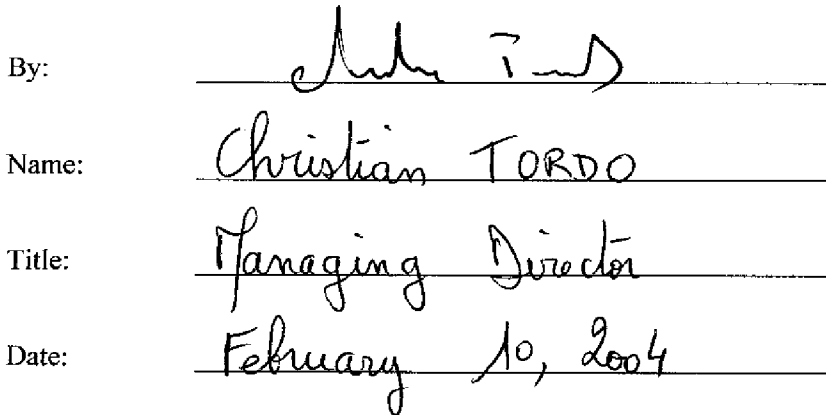 By:
Name: Christian TORDO
Title: Managing Director
Date: February 10, 2004